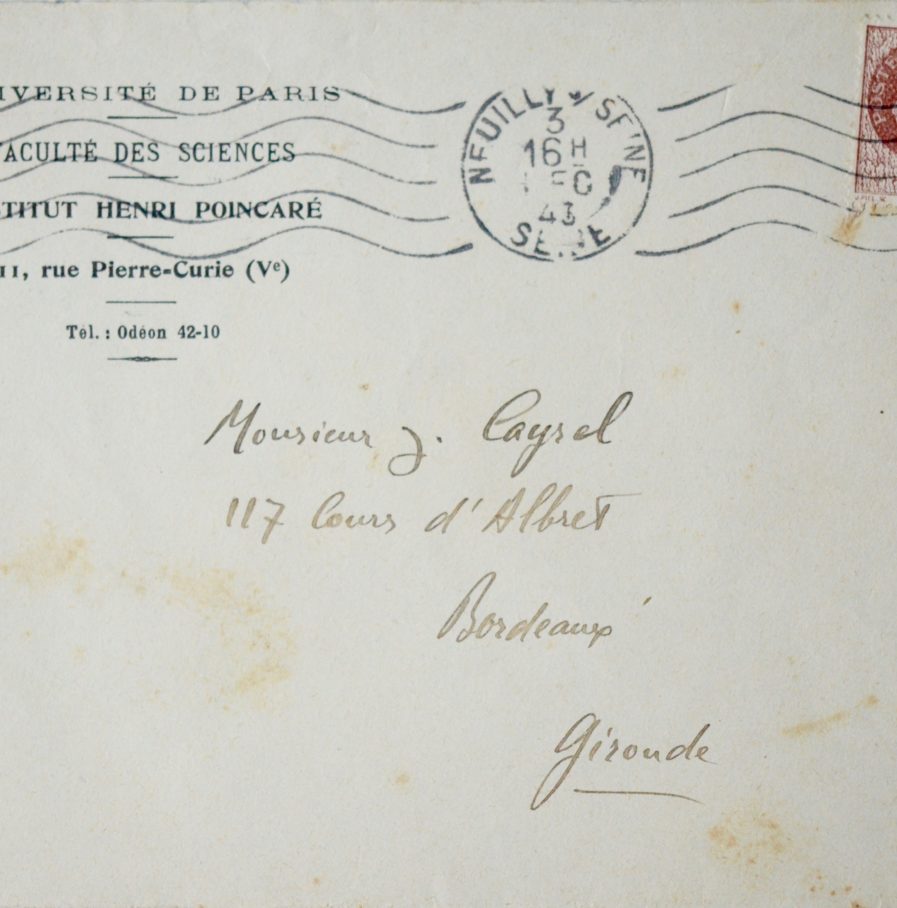 IVERSITÉ DE PARIS
FACULTÉ DES SCIENCES
STITUT HENRI POINCARÉ
11, rue Pierre-Curie (Vᵉ)
Tél. : Odéon 42-10
NEUILLY S/ SEINE
3
16 H
43
SEINE
POSTE
Monsieur J. Cayrel
117 Cours d'Albret
Bordeaux
Gironde